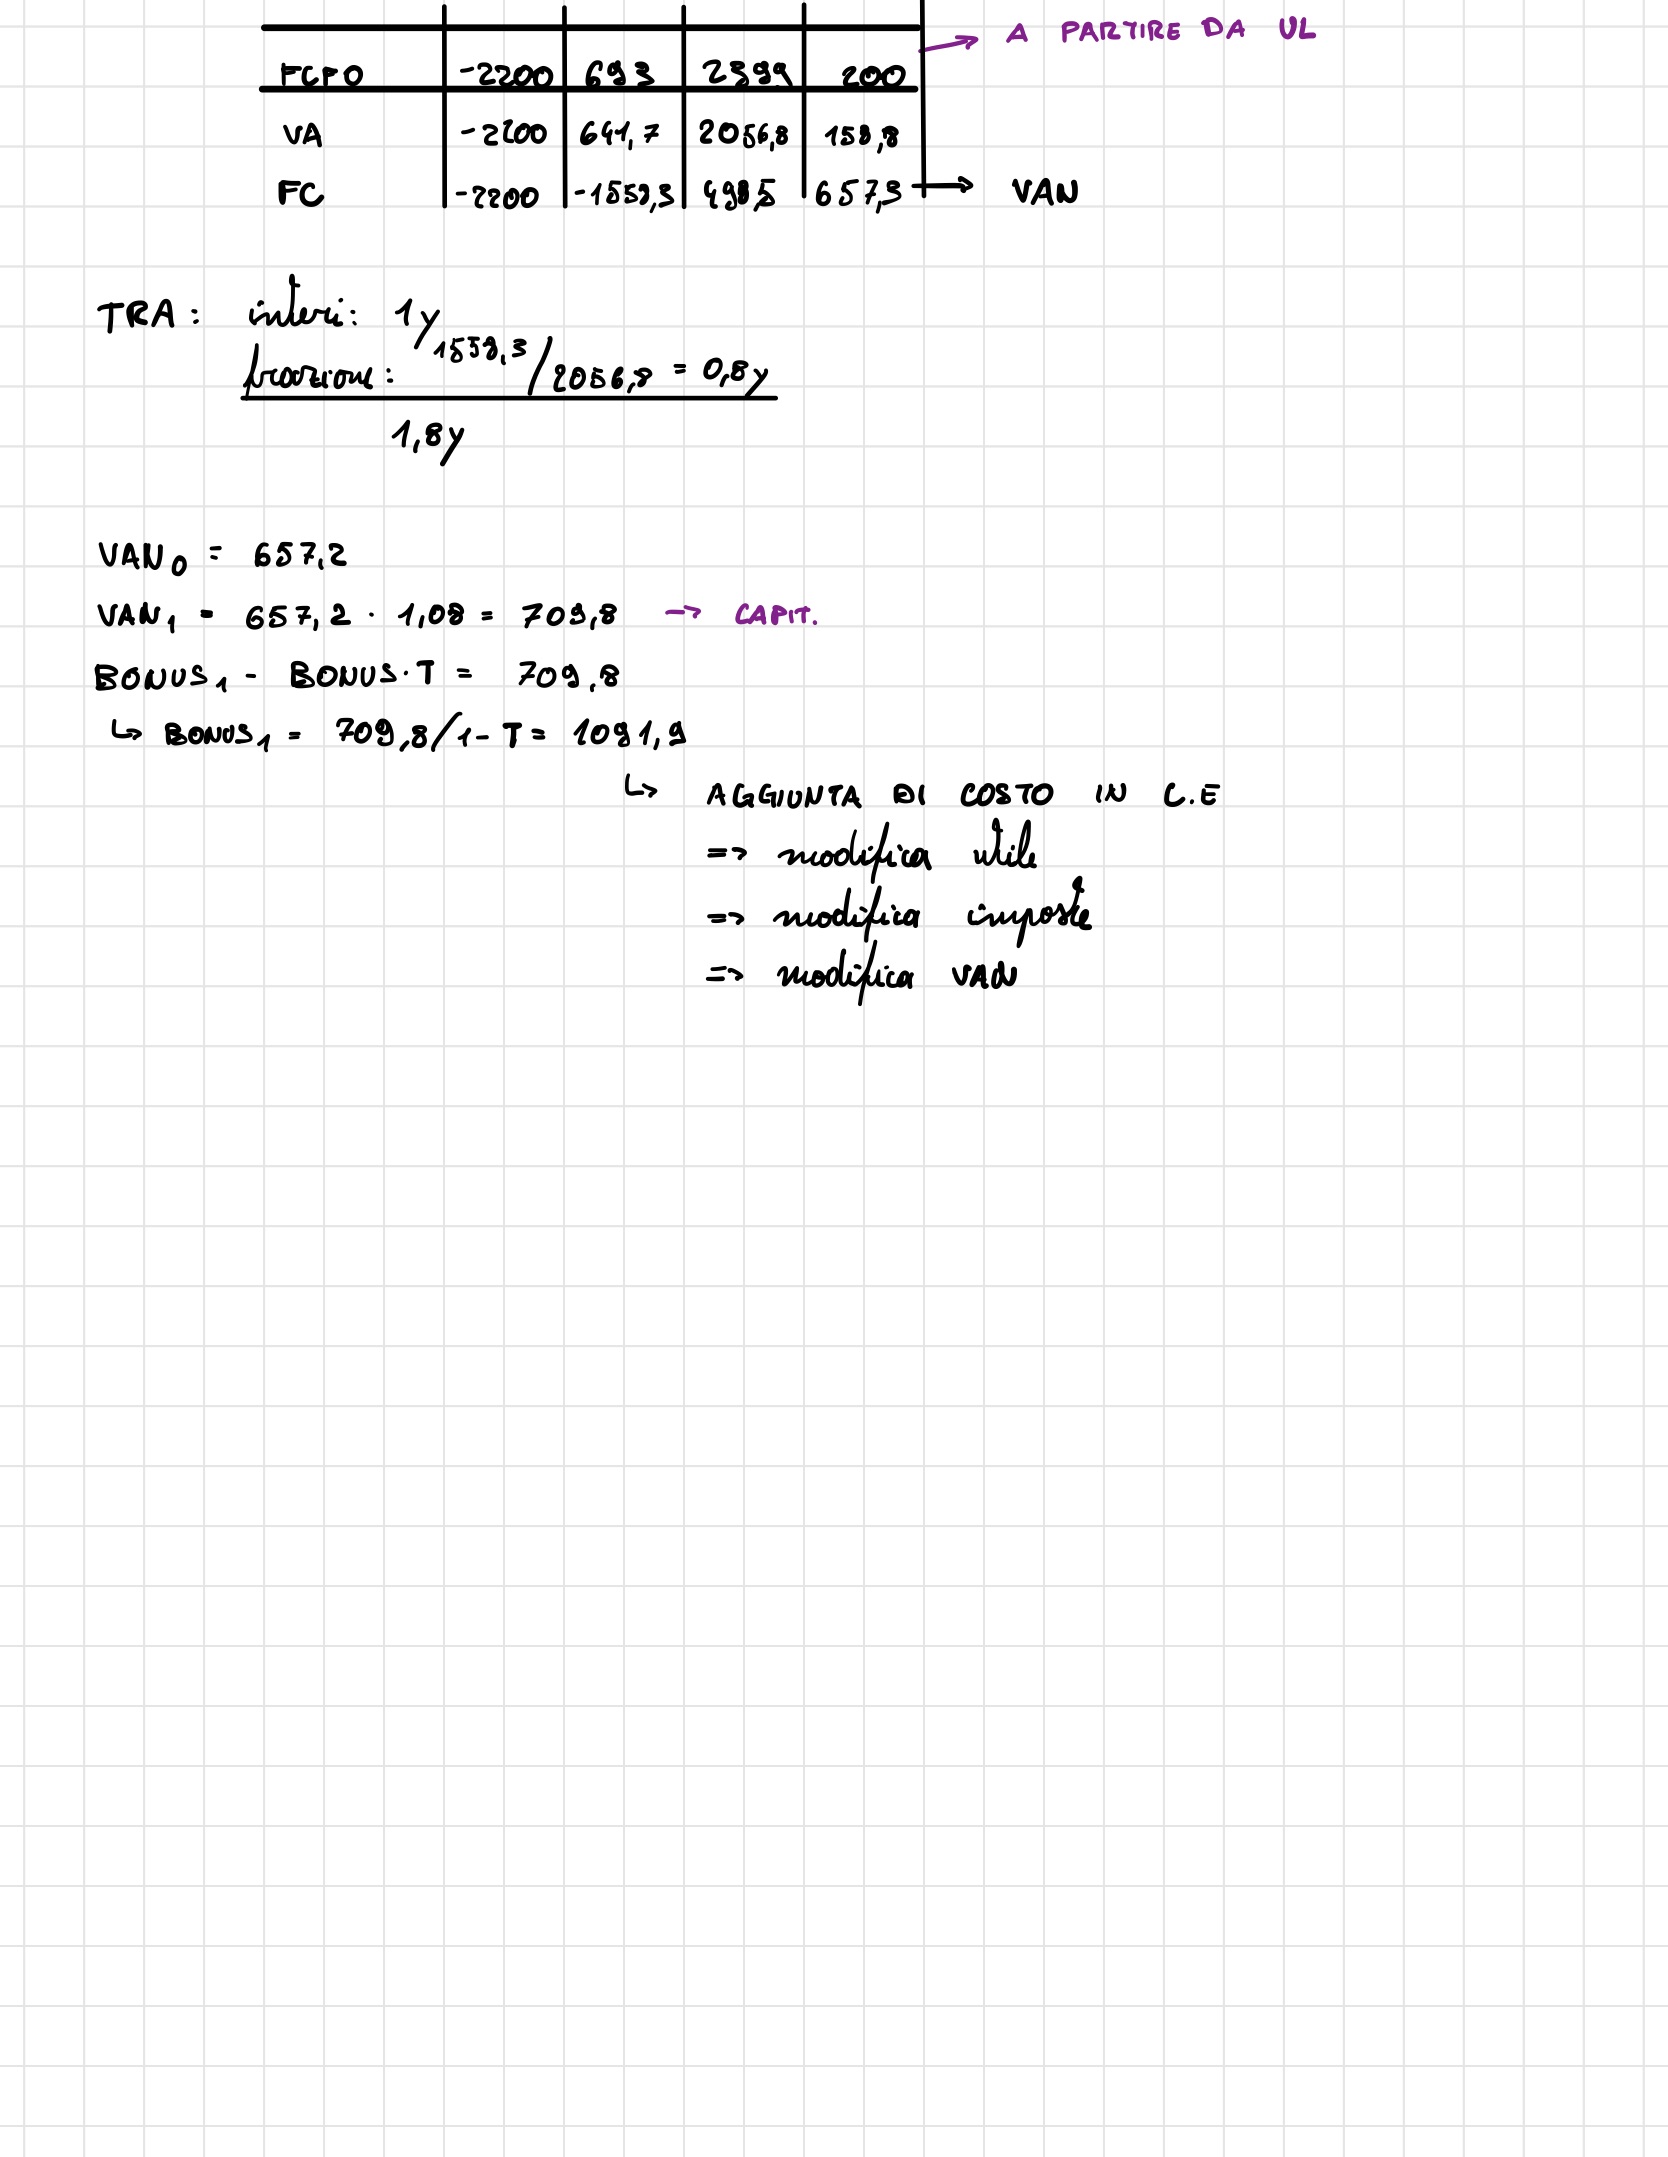 → A PARTIRE DA UL
FCFO -2200 693 2399 200
VA -2200 641,7 2056,8 158,8
FC -2200 -1558,3 498,5 657,3 → VAN
TRA: interi: 1y
frazione: 1558,3/2056,8 = 0,8y
1,8y
VAN0 = 657,2
VAN1 = 657,2 · 1,08 = 709,8 → CAPIT.
BONUS1 - BONUS·T = 709,8
↳ BONUS1 = 709,8/1-T = 1091,9
↳ AGGIUNTA DI COSTO IN C.E
=> modifica utile
=> modifica imposte
=> modifica VAN